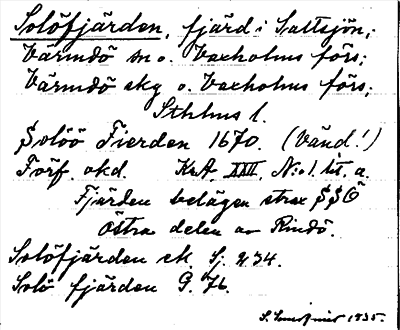 Solöfjärden, fjärd i Saltsjön;
Värmdö sn o. Vaxholms förs;
Värmdö skg o. Vaxholms förs;
Sthlms l.
Solöö Fierden 1670. (Vänd!)
Förf. okd. KrA. XXII, N:o 1. lit. a.
Fjärden belägen strax S
östra delen av Rindö.
Solöfjärden ek Sj. 234.
Solö fjärden G. 76.
1935.